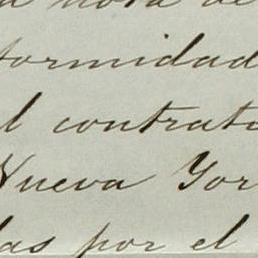 a nota de
formidad
l contrato
Nueva Yor
las por el